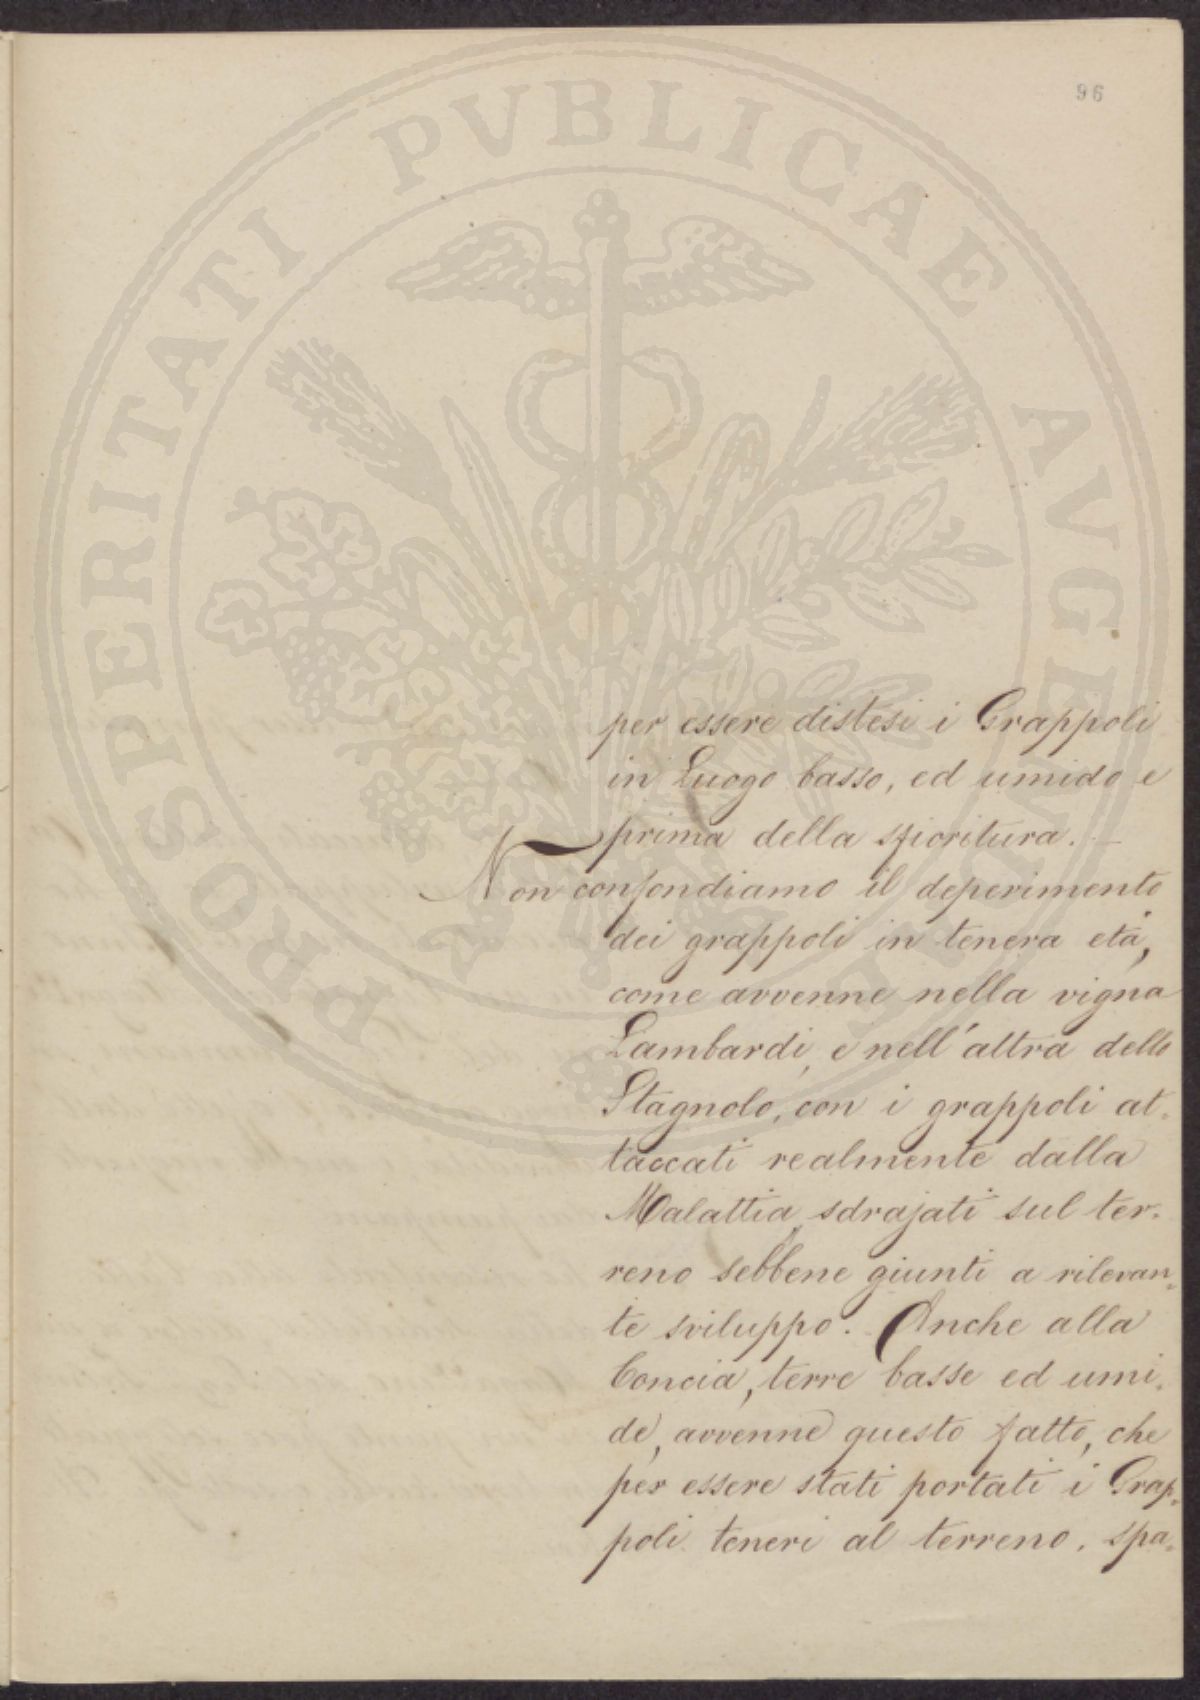 96
PROSPERITATI PUBLICAE AVGENDAE
per essere distesi i Grappoli
in Luogo basso, ed umido e
prima della sfioritura. —
Non confondiamo il deperimento
dei grappoli in tenera età,
come avvenne nella vigna
Lambardi, e nell'altra dello
Stagnolo, con i grappoli at-
taccati realmente dalla
Malattia, sdrajati sul ter-
reno sebbene giunti a rilevan-
te sviluppo. Anche alla
Concia, terre basse ed umi-
de, avvenne questo fatto, che
per essere stati portati i Grap-
poli teneri al terreno, spa-